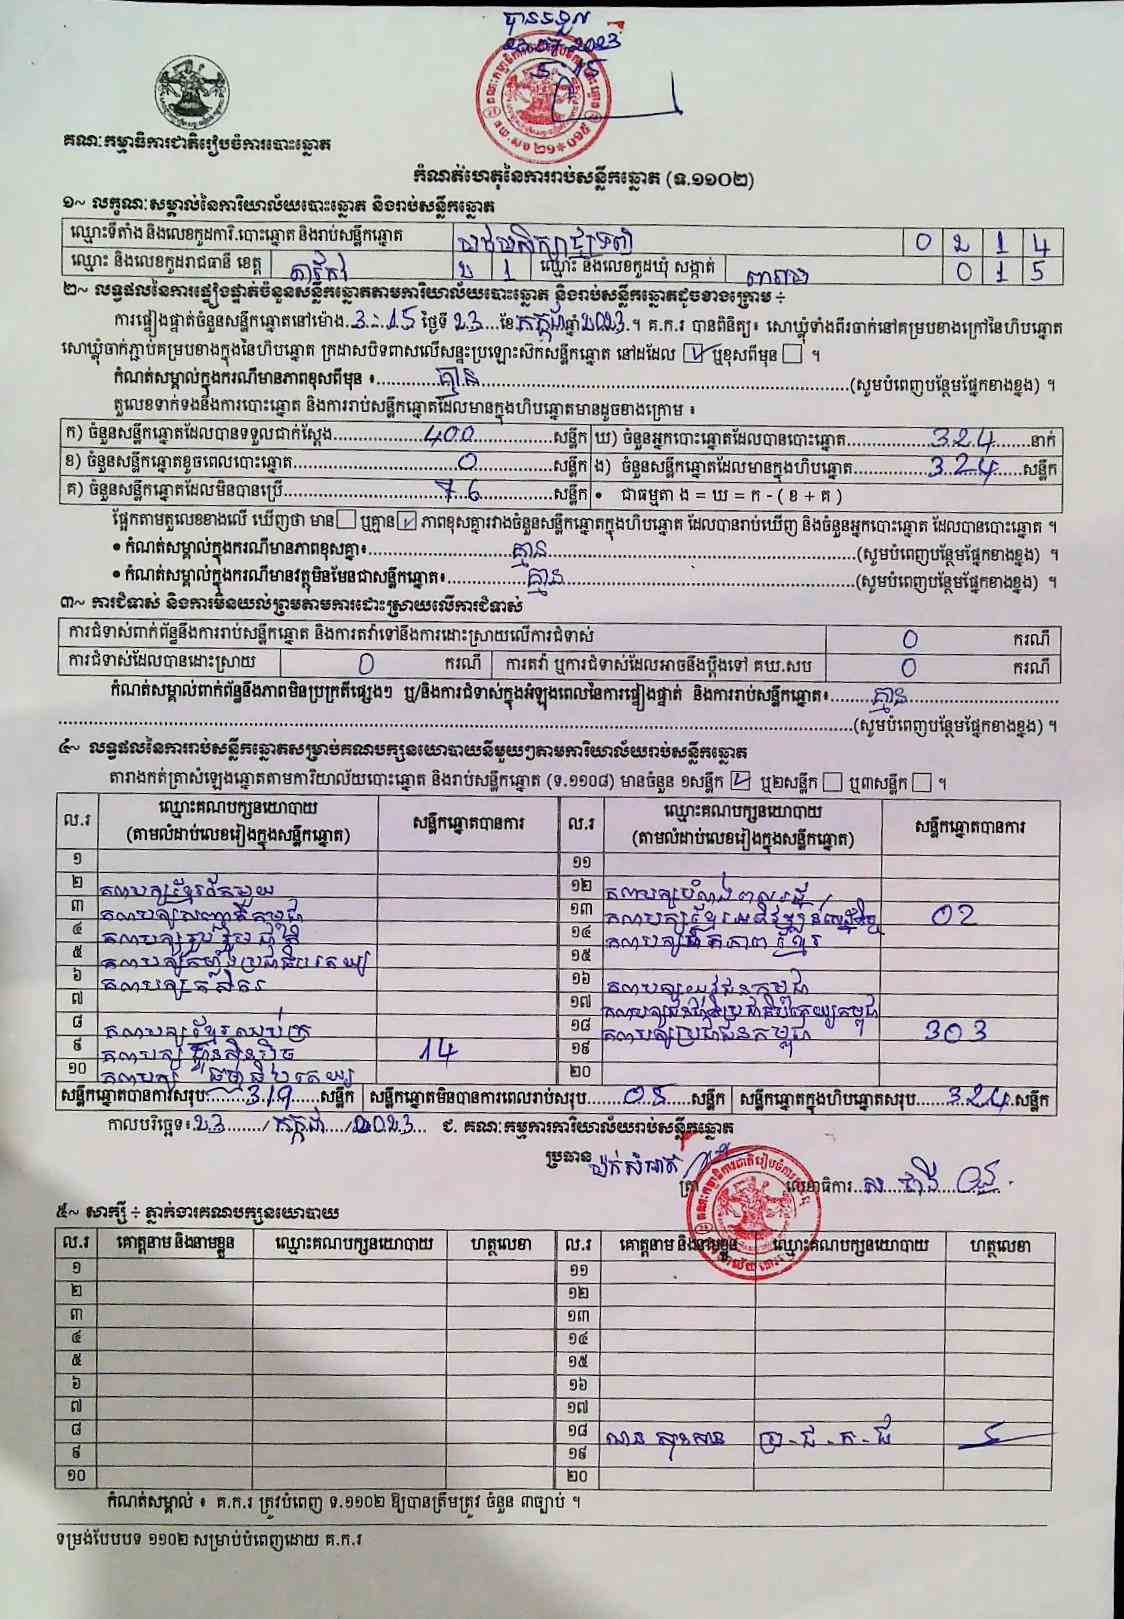 បានទទួល
23 07 2023
5:15
គណៈកម្មាធិការជាតិរៀបចំការបោះឆ្នោត
កំណត់ហេតុនៃការរាប់សន្លឹកឆ្នោត (ទ.១១០២)
១~ លក្ខណៈសម្គាល់នៃការិយាល័យបោះឆ្នោត និងរាប់សន្លឹកឆ្នោត
ឈ្មោះទីតាំង និងលេខកូដការិ.បោះឆ្នោត និងរាប់សន្លឹកឆ្នោត 0 2 1 4
ឈ្មោះ និងលេខកូដរាជធានី ខេត្ត តាកែវ 2 1 ឈ្មោះ និងលេខកូដឃុំ សង្កាត់ 0 1 5
២~ លទ្ធផលនៃការផ្ទៀងផ្ទាត់ចំនួនសន្លឹកឆ្នោតតាមការិយាល័យបោះឆ្នោត និងរាប់សន្លឹកឆ្នោតដូចខាងក្រោម ÷
ការផ្ទៀងផ្ទាត់ចំនួនសន្លឹកឆ្នោតនៅម៉ោង..3:15 ថ្ងៃទី 23....ខែ កក្កដា ឆ្នាំ 2023.។ គ.ក.រ បានពិនិត្យ៖ សោឃ្លុំទាំងពីរចាក់នៅគម្របខាងក្រៅនៃហិបឆ្នោត
សោឃ្លុំចាក់ភ្ជាប់គម្របខាងក្នុងនៃហិបឆ្នោត ក្រដាសបិទពាសលើសន្ទះប្រឡោះស៊កសន្លឹកឆ្នោត នៅដដែល ☑ ឬខុសពីមុន ☐ ។
កំណត់សម្គាល់ក្នុងករណីមានភាពខុសពីមុន ៖ គ្មាន (សូមបំពេញបន្ថែមផ្នែកខាងខ្នង) ។
តួលេខទាក់ទងនឹងការបោះឆ្នោត និងការរាប់សន្លឹកឆ្នោតដែលមានក្នុងហិបឆ្នោតមានដូចខាងក្រោម ៖
ក) ចំនួនសន្លឹកឆ្នោតដែលបានទទួលជាក់ស្តែង 400 សន្លឹក ឃ) ចំនួនអ្នកបោះឆ្នោតដែលបានបោះឆ្នោត 324 នាក់
ខ) ចំនួនសន្លឹកឆ្នោតខូចពេលបោះឆ្នោត 0 សន្លឹក ង) ចំនួនសន្លឹកឆ្នោតដែលមានក្នុងហិបឆ្នោត 324 សន្លឹក
គ) ចំនួនសន្លឹកឆ្នោតដែលមិនបានប្រើ 76 សន្លឹក • ជាធម្មតា ង = ឃ = ក - ( ខ + គ )
ផ្អែកតាមតួលេខខាងលើ ឃើញថា មាន ☐ ឬគ្មាន ☑ ភាពខុសគ្នារវាងចំនួនសន្លឹកឆ្នោតក្នុងហិបឆ្នោត ដែលបានរាប់ឃើញ និងចំនួនអ្នកបោះឆ្នោត ដែលបានបោះឆ្នោត ។
• កំណត់សម្គាល់ក្នុងករណីមានភាពខុសគ្នា៖ គ្មាន (សូមបំពេញបន្ថែមផ្នែកខាងខ្នង) ។
• កំណត់សម្គាល់ក្នុងករណីមានវត្ថុមិនមែនជាសន្លឹកឆ្នោត៖ គ្មាន (សូមបំពេញបន្ថែមផ្នែកខាងខ្នង) ។
៣~ ការជំទាស់ និងការមិនយល់ព្រមតាមការដោះស្រាយលើការជំទាស់
ការជំទាស់ពាក់ព័ន្ធនឹងការរាប់សន្លឹកឆ្នោត និងការតវ៉ាទៅនឹងការដោះស្រាយលើការជំទាស់ 0 ករណី
ការជំទាស់ដែលបានដោះស្រាយ 0 ករណី ការតវ៉ា ឬការជំទាស់ដែលអាចនឹងប្តឹងទៅ គឃ.សប 0 ករណី
កំណត់សម្គាល់ពាក់ព័ន្ធនឹងភាពមិនប្រក្រតីផ្សេងៗ ឬ/និងការជំទាស់ក្នុងអំឡុងពេលនៃការផ្ទៀងផ្ទាត់ និងការរាប់សន្លឹកឆ្នោត៖ គ្មាន
(សូមបំពេញបន្ថែមផ្នែកខាងខ្នង) ។
៤~ លទ្ធផលនៃការរាប់សន្លឹកឆ្នោតសម្រាប់គណបក្សនយោបាយនីមួយៗតាមការិយាល័យរាប់សន្លឹកឆ្នោត
តារាងកត់ត្រាសំឡេងឆ្នោតតាមការិយាល័យបោះឆ្នោត និងរាប់សន្លឹកឆ្នោត (ទ.១១០៨) មានចំនួន ១សន្លឹក ☑ ឬ២សន្លឹក ☐ ឬ៣សន្លឹក ☐ ។
ល.រ ឈ្មោះគណបក្សនយោបាយ (តាមលំដាប់លេខរៀងក្នុងសន្លឹកឆ្នោត) សន្លឹកឆ្នោតបានការ ល.រ ឈ្មោះគណបក្សនយោបាយ (តាមលំដាប់លេខរៀងក្នុងសន្លឹកឆ្នោត) សន្លឹកឆ្នោតបានការ
១ ១១
២ គណបក្សខ្មែររួបរួម ១២
៣ គណបក្សសញ្ជាតិកម្ពុជា ១៣ គណបក្សខ្មែរអភិវឌ្ឍន៍សេដ្ឋកិច្ច 02
៤ ១៤ គណបក្សឯកភាពខ្មែរ
៥ គណបក្សកម្លាំងប្រជាធិបតេយ្យ ១៥
៦ គណបក្សកសិករ ១៦ គណបក្សយុវជនកម្ពុជា
៧ ១៧
៨ ១៨ គណបក្សប្រជាជនកម្ពុជា 303
៩ គណបក្សហ្វ៊ុនស៊ិនប៉ិច 14 ១៩
១០ គណបក្សធម្មាធិបតេយ្យ ២០
សន្លឹកឆ្នោតបានការសរុប 319 សន្លឹក សន្លឹកឆ្នោតមិនបានការពេលរាប់សរុប 05 សន្លឹក សន្លឹកឆ្នោតក្នុងហិបឆ្នោតសរុប 324 សន្លឹក
កាលបរិច្ឆេទ៖ 23 / កក្កដា / 2023 ជ. គណៈកម្មការការិយាល័យរាប់សន្លឹកឆ្នោត
ប្រធាន
ត្រា លេខាធិការ
៥~ សាក្សី ÷ ភ្នាក់ងារគណបក្សនយោបាយ
ល.រ គោត្តនាម និងនាមខ្លួន ឈ្មោះគណបក្សនយោបាយ ហត្ថលេខា ល.រ គោត្តនាម និងនាមខ្លួន ឈ្មោះគណបក្សនយោបាយ ហត្ថលេខា
១ ១១
២ ១២
៣ ១៣
៤ ១៤
៥ ១៥
៦ ១៦
៧ ១៧
៨ ១៨ ប្រ-ជ-ក-ជ
៩ ១៩
១០ ២០
កំណត់សម្គាល់ ៖ គ.ក.រ ត្រូវបំពេញ ទ.១១០២ ឱ្យបានត្រឹមត្រូវ ចំនួន ៣ច្បាប់ ។
ទម្រង់បែបបទ ១១០២ សម្រាប់បំពេញដោយ គ.ក.រ